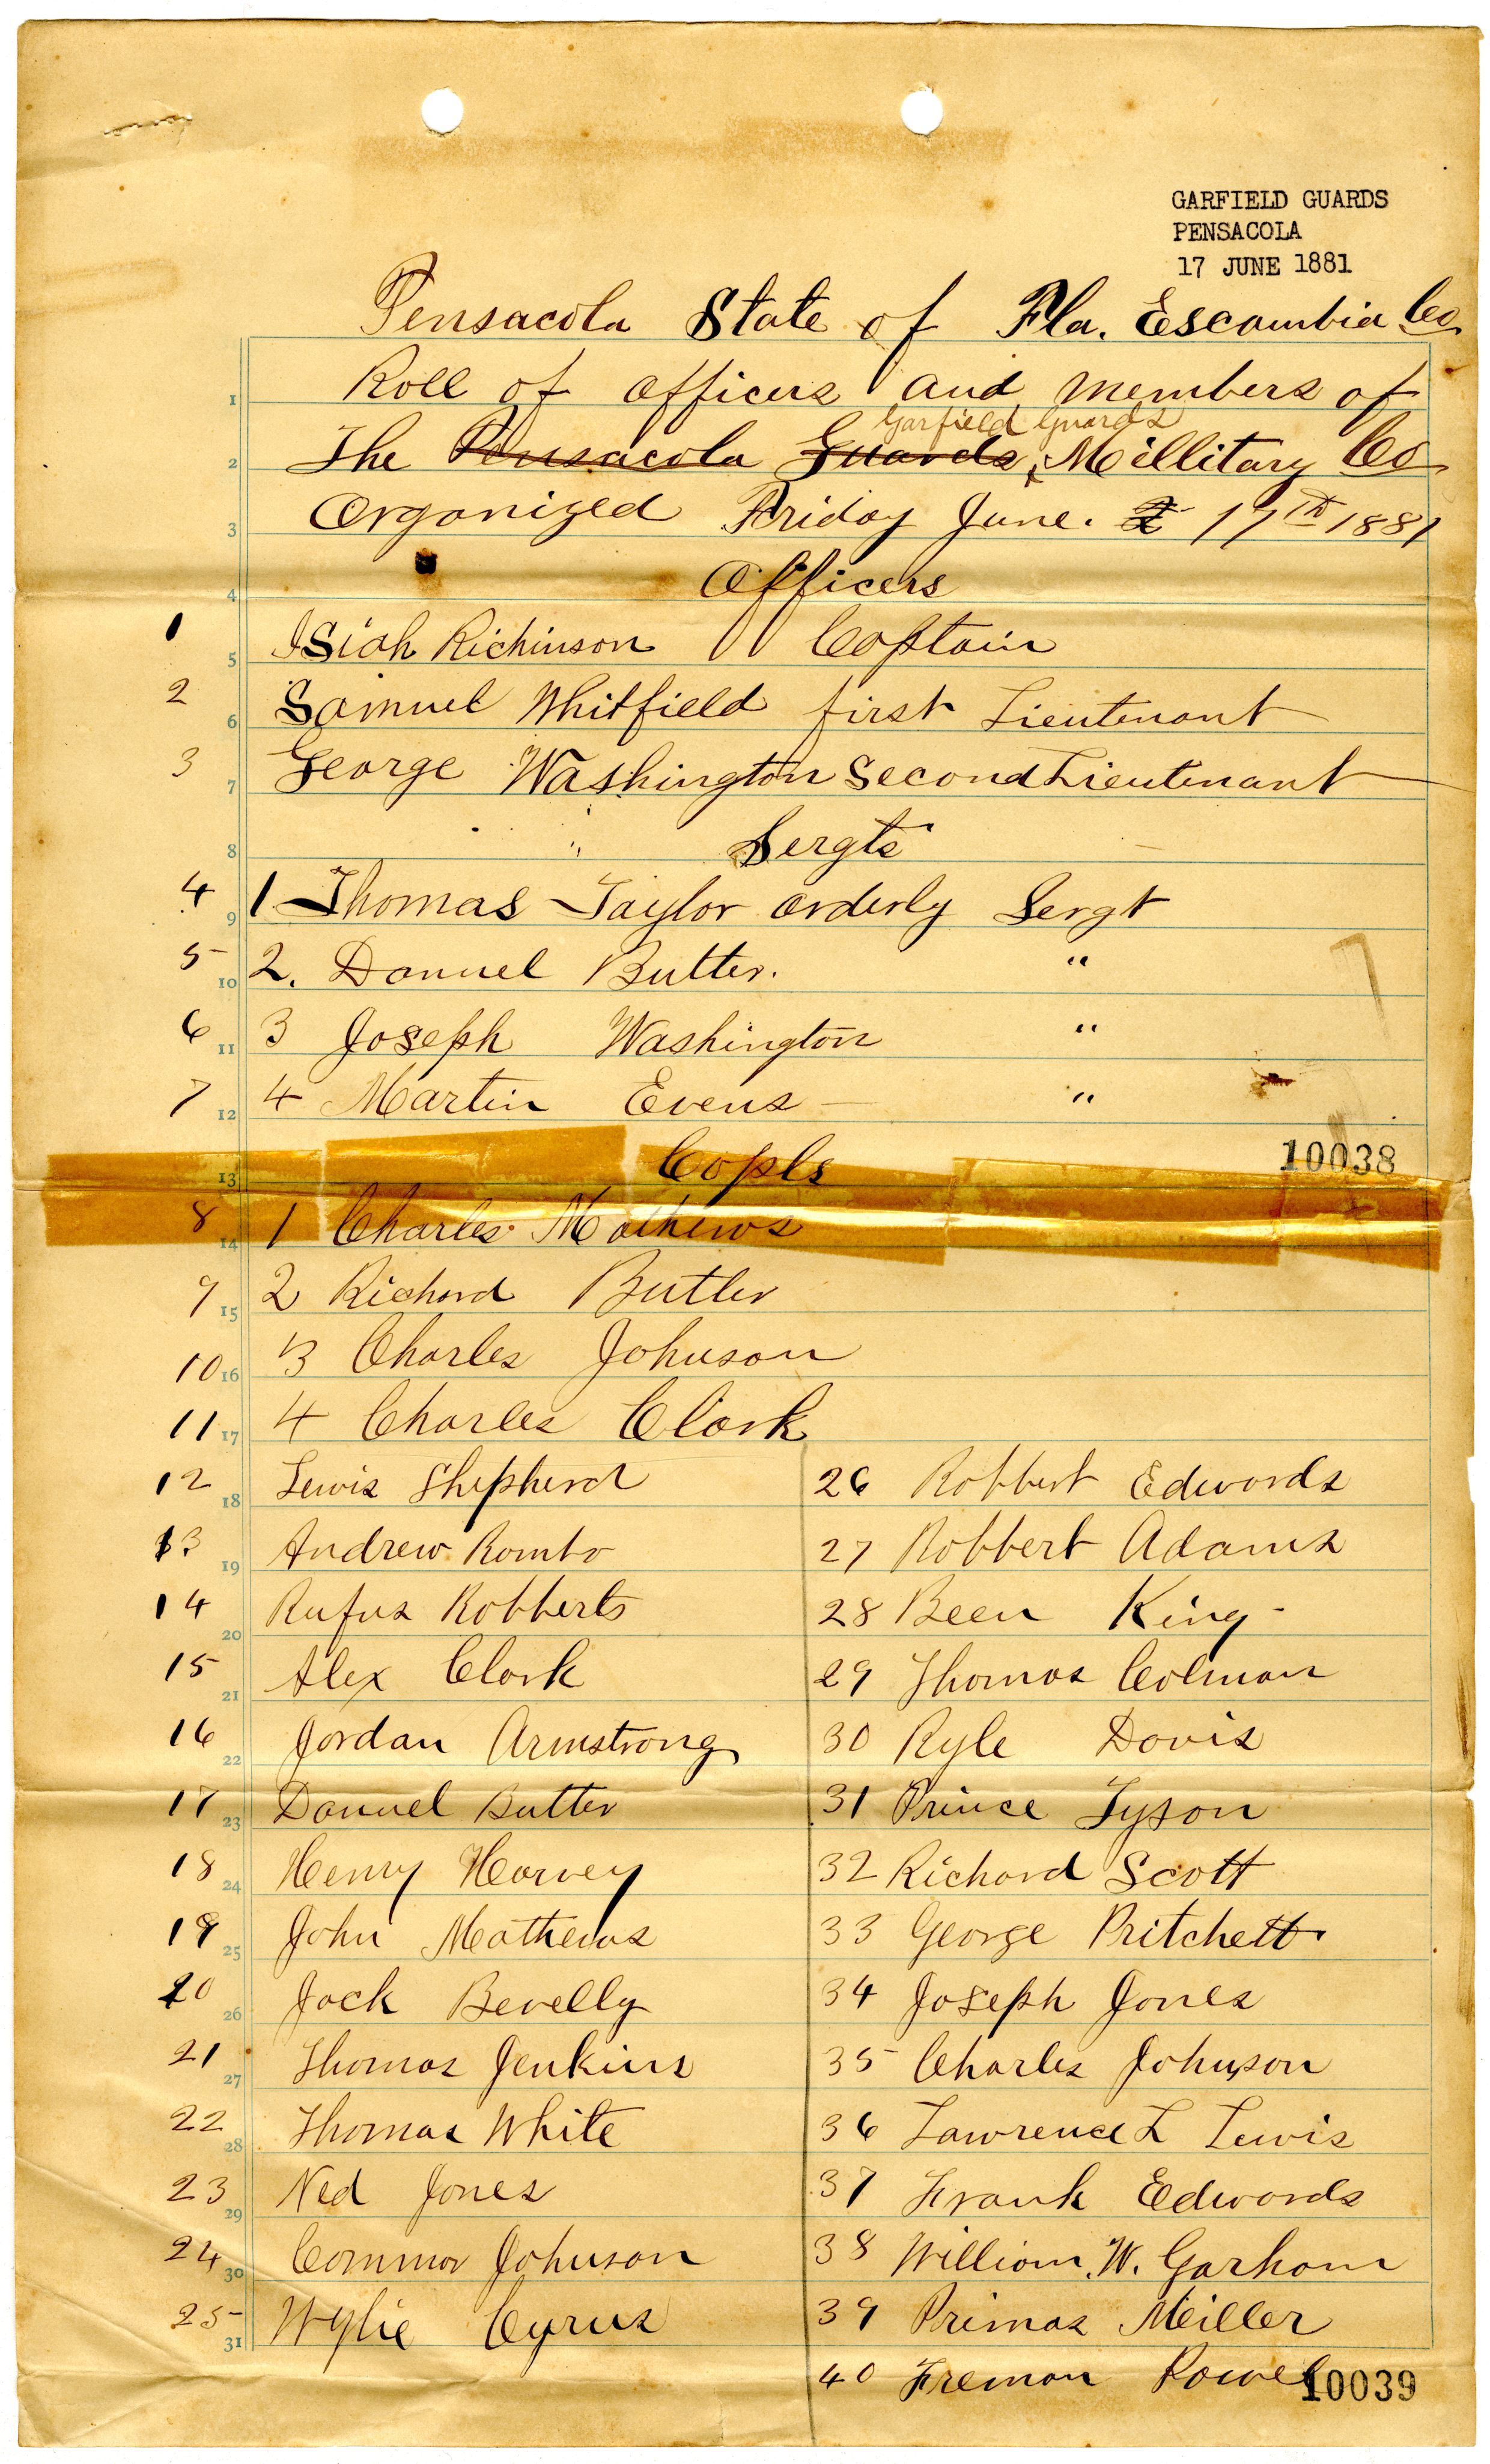 GARFIELD GUARDS
PENSACOLA
17 JUNE 1881
Pensacola State of Fla. Escambia Co
1 Roll of officers and members of
Garfield Guards
2 The Pensacola Guards, Millitary Co
3 Organized Friday June. 2 17th 1881
4 Officers
1 5 Isiah Richinson Captain
2 6 Samuel Whitfield first Lieutenant
3 7 George Washington Second Lieutenant
8 " Sergts
4 9 1 Thomas Taylor orderly Sergt
5 10 2. Danuel Butter. "
6 11 3 Joseph Washington "
7 12 4 Martin Evens — "
10038
13 Copls
8 14 1 Charles Mathews
9 15 2 Richard Butler
10 16 3 Charles Johnson
11 17 4 Charles Clark
12 18 Lewis Shepherd
13 19 Andrew Rambo
14 20 Rufus Robberts
15 21 Alex Clark
16 22 Jordan Armstrong
17 23 Danuel Butter
18 24 Henry Harvey
19 25 John Mathews
20 26 Jack Bevelly
21 27 Thomas Jenkins
22 28 Thomas White
23 29 Ned Jones
24 30 Commor Johnson
25 31 Wylie Cyrus
26 Robbert Edwards
27 Robbert Adams
28 Been King
29 Thomas Colman
30 Ryle Davis
31 Prince Tyson
32 Richard Scott
33 George Pritchett
34 Joseph Jones
35 Charles Johnson
36 Lawrence L Lewis
37 Frank Edwards
38 William. W. Garham
39 Primas Meiller
40 Freman Powel
10039